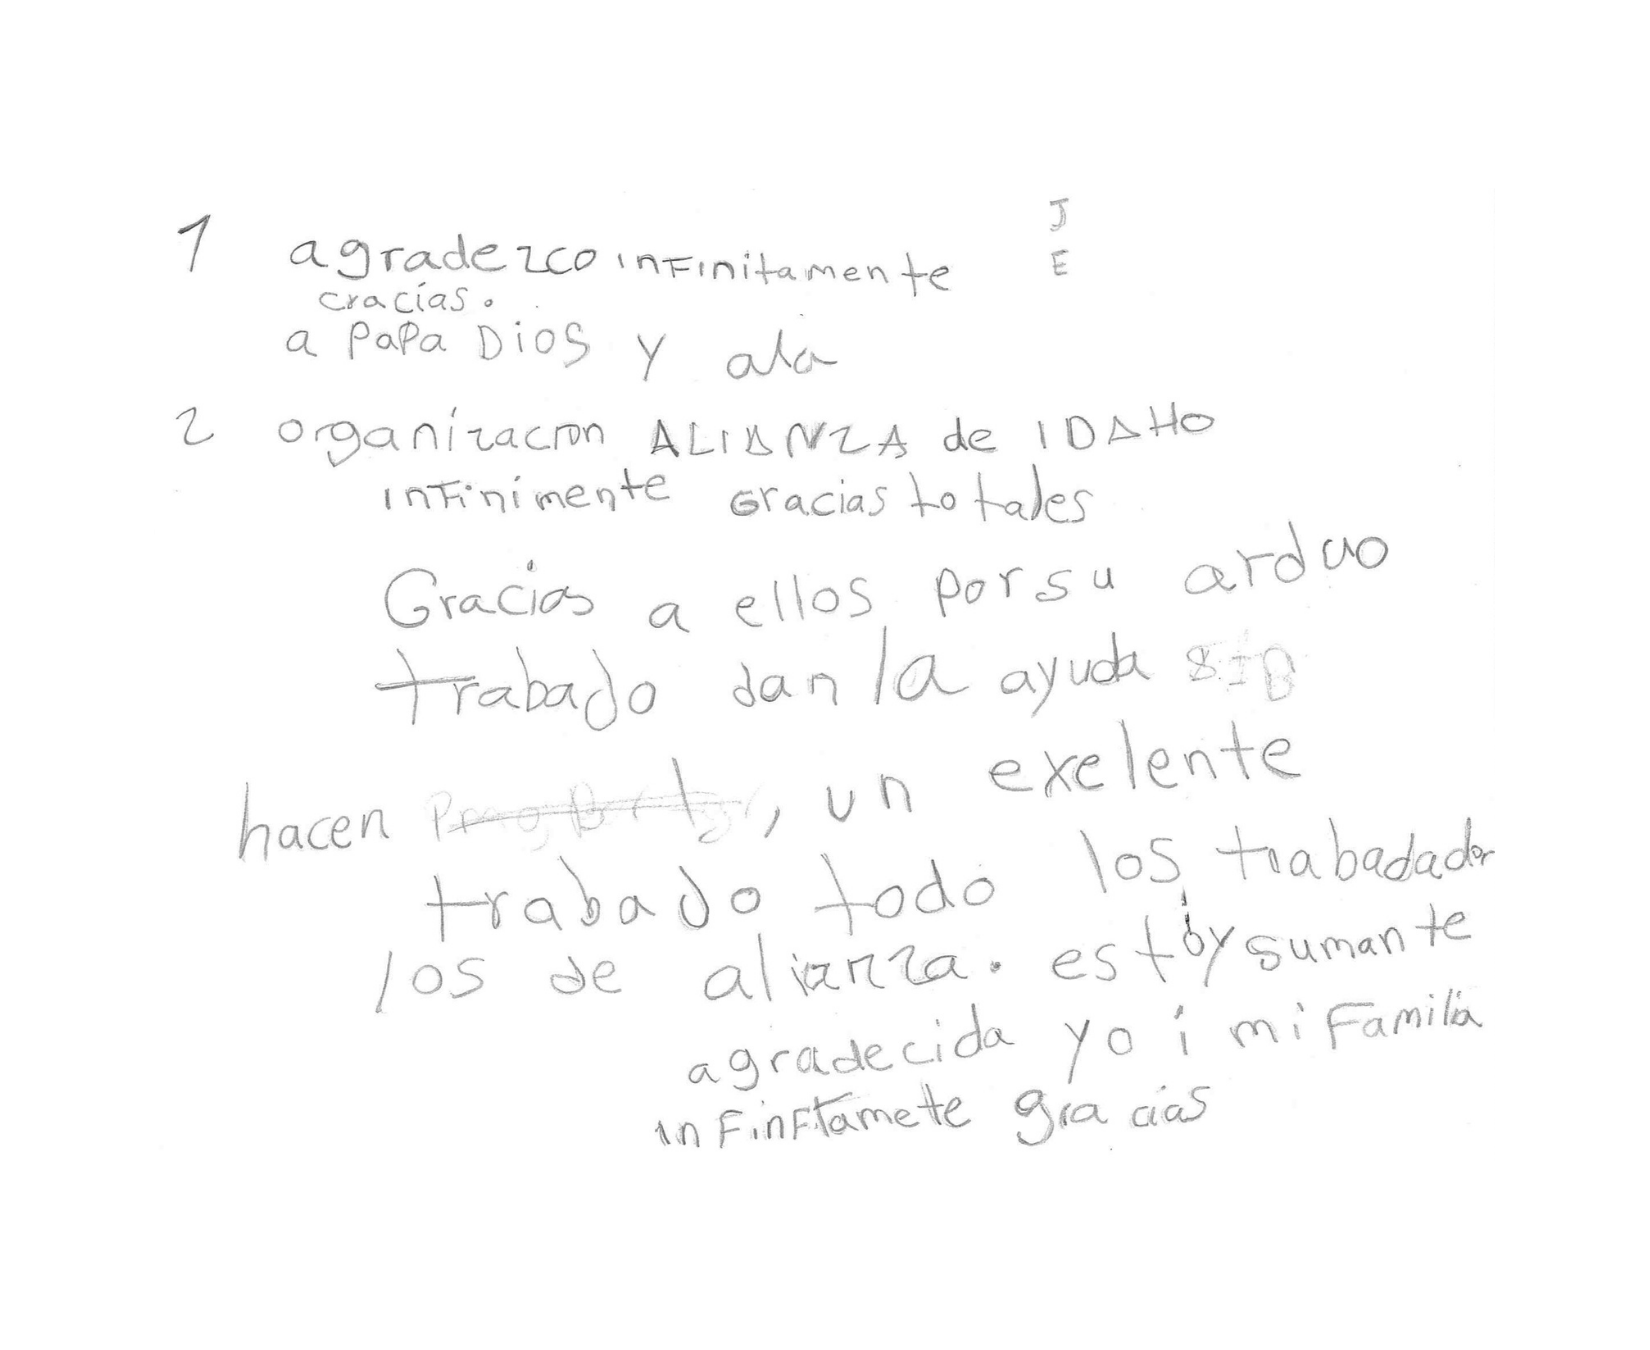 J
1 agradezco infinitamente
E
cracías.
a PaPa Dios y ala
2 organízacion ALIANZA de IDAHO
infinímente Gracias totales
Gracias a ellos por su arduo
trabado dan la ayuda
hacen , un exelente
trabado todo los trabadador
los de alianza. estoy sumante
agradecida yo i mi Familia
infinftamete gracias